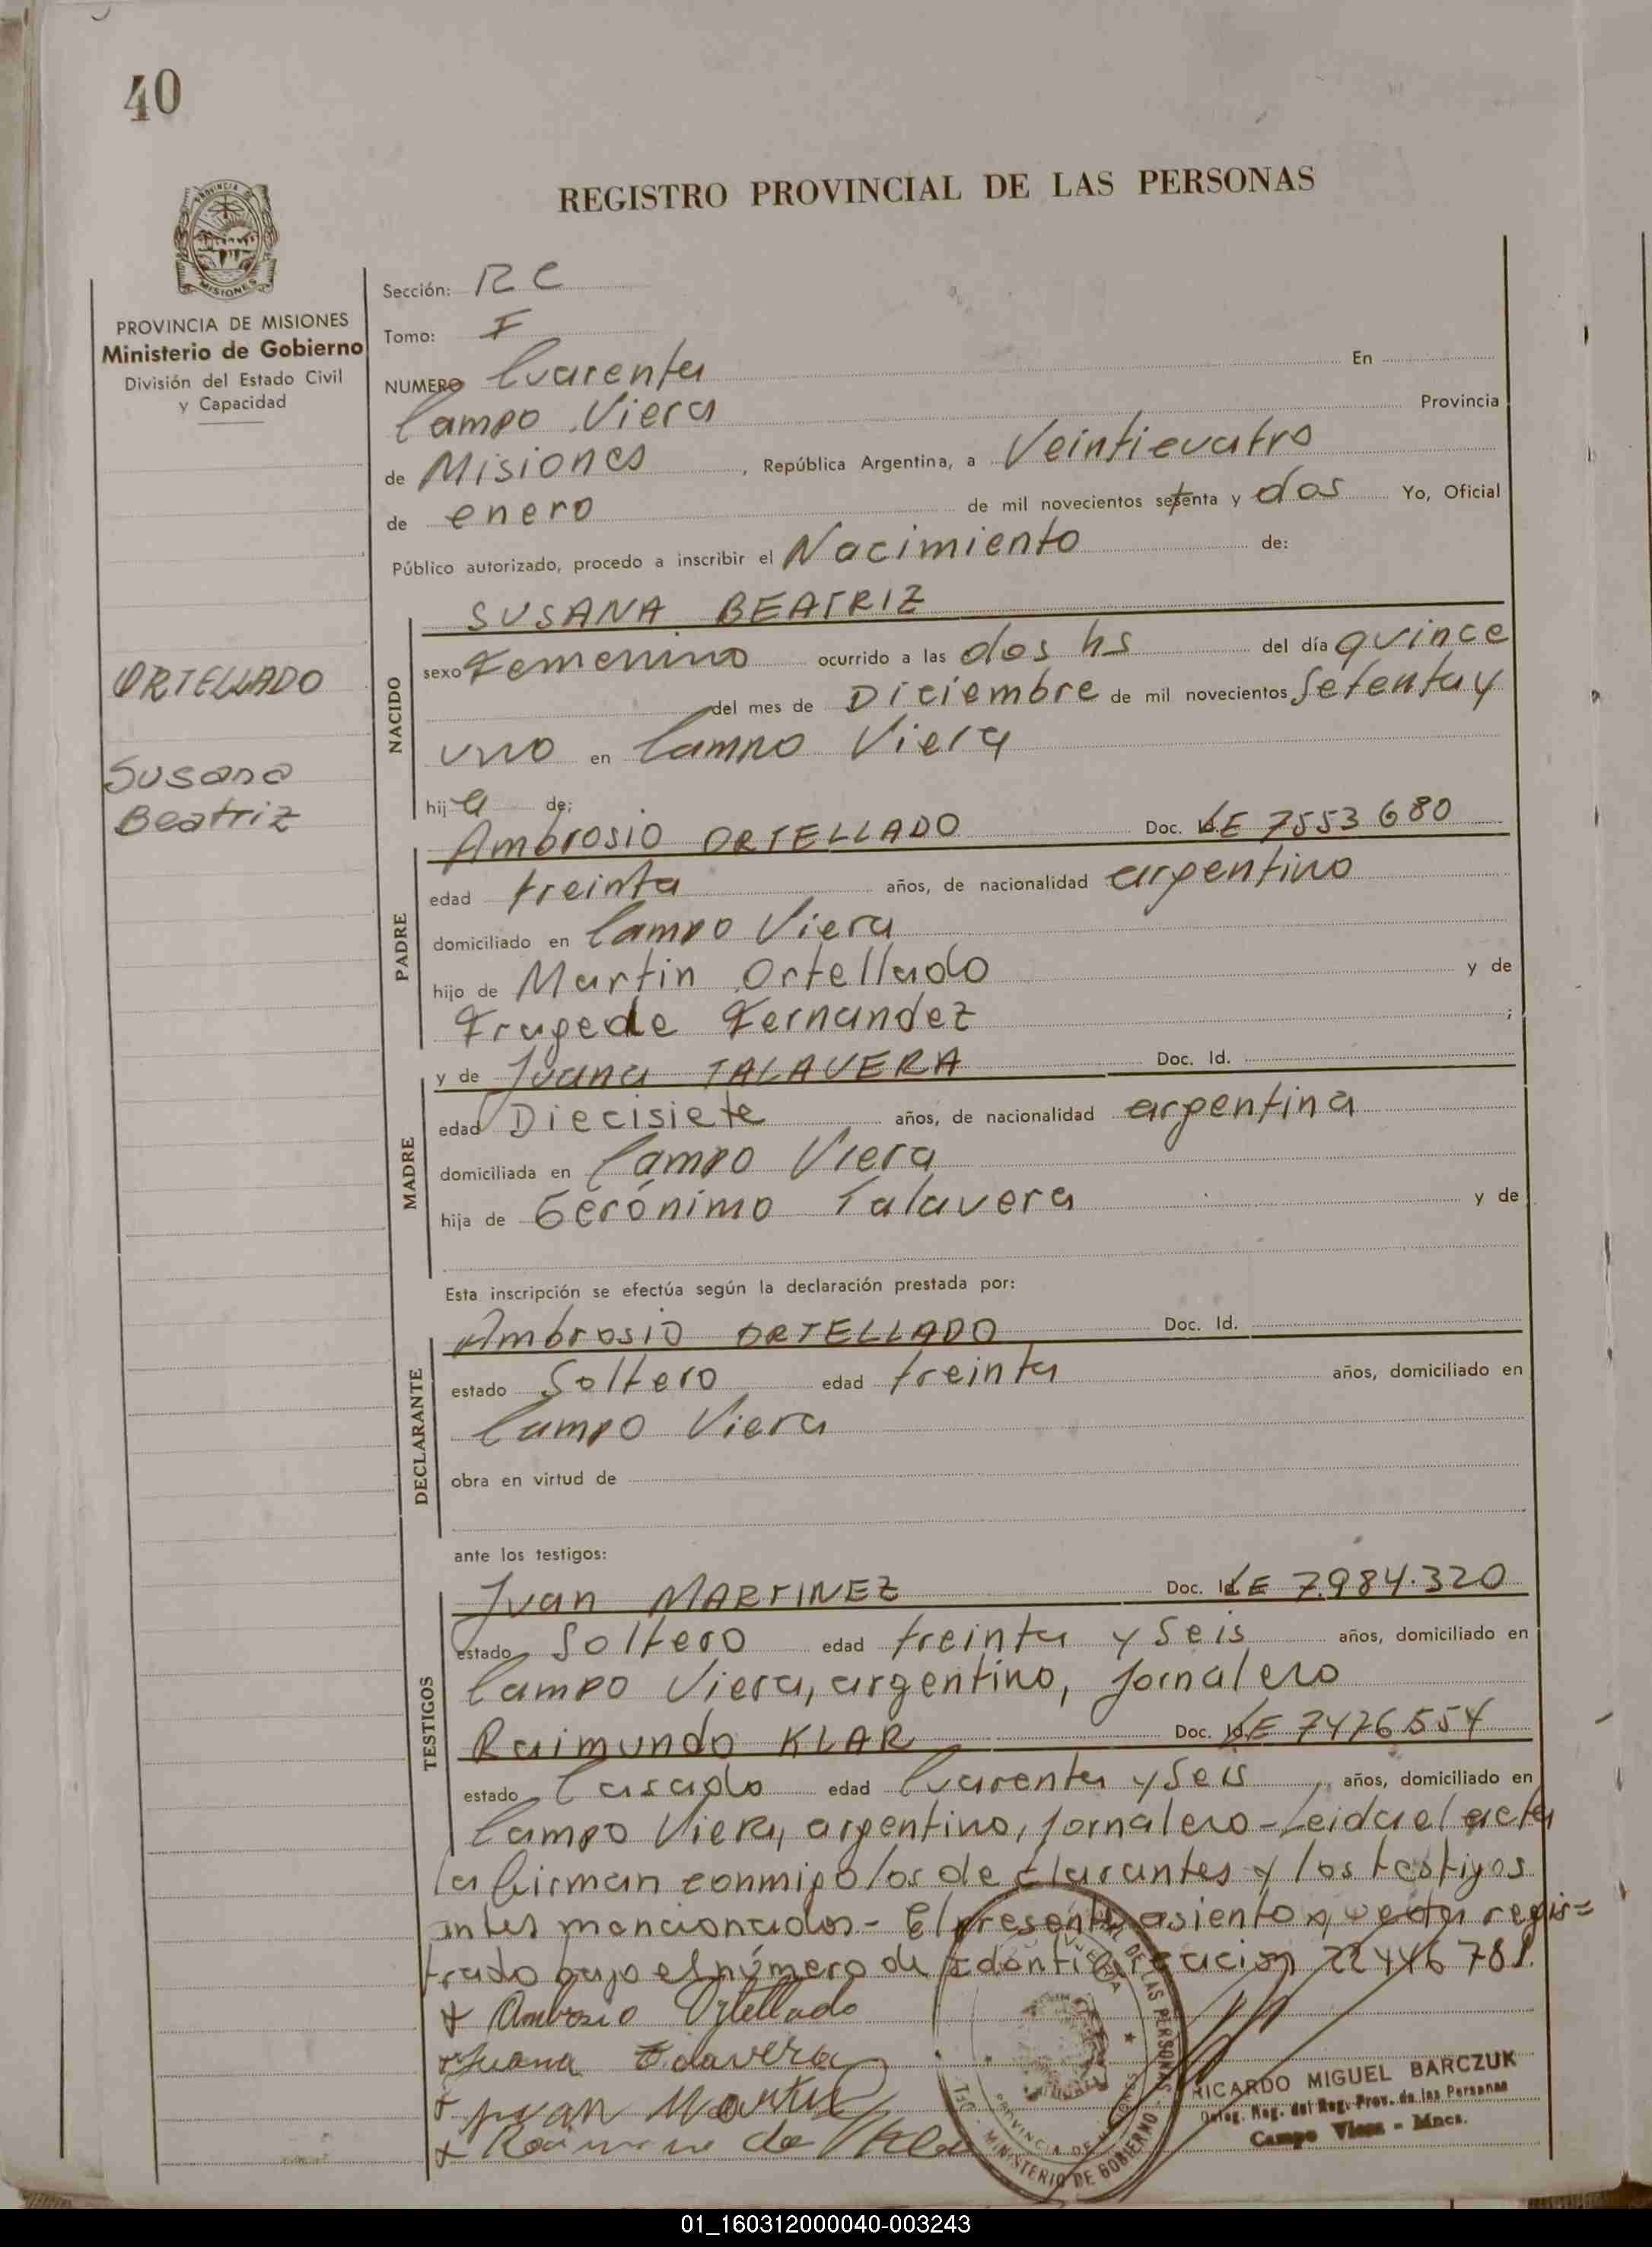 40
REGISTRO PROVINCIAL DE LAS PERSONAS
PROVINCIA DE MISIONES
Ministerio de Gobierno
División del Estado Civil
y Capacidad
Sección: R C
Tomo: I
NUMERO Cuarenta En
Campo Viera Provincia
de Misiones, República Argentina, a Veinticuatro
de enero de mil novecientos setenta y dos Yo, Oficial
Público autorizado, procedo a inscribir el Nacimiento de:
ORTELLADO
Susana
Beatriz
NACIDO
SUSANA BEATRIZ
sexo Femenino ocurrido a las dos hs del día quince
del mes de Diciembre de mil novecientos Setenta y
uno en Campo Viera
hija de:
PADRE
Ambrosio ORTELLADO Doc. LE 7553680
edad treinta años, de nacionalidad argentino
domiciliado en Campo Viera
hijo de Martin Ortellado y de
Fragede Fernandez ;
MADRE
y de Juana TALAVERA Doc. Id.
edad Diecisiete años, de nacionalidad argentina
domiciliada en Campo Viera
hija de Gerónimo Talavera y de
Esta inscripción se efectúa según la declaración prestada por:
DECLARANTE
Ambrosio ORTELLADO Doc. Id.
estado Soltero edad treinta años, domiciliado en
Campo Viera
obra en virtud de
ante los testigos:
TESTIGOS
Juan MARTINEZ Doc. Id. LE 7.984.320
estado Soltero edad treinta y Seis años, domiciliado en
Campo Viera, argentino, jornalero
Raimundo KLAR Doc. Id. LE 7476554
estado Casado edad Cuarenta y Seis años, domiciliado en
Campo Viera, argentino, jornalero - Leida el acta
la firman conmigo los declarantes y los testigos
antes mencionados.- El presente asiento queda regis=
trado bajo el número de Identificacion 22446781.
Ambrosio Ortellado
Juana Talavera
Juan Martinez
Raimundo Klar
RICARDO MIGUEL BARCZUK
Deleg. Reg. del Reg. Prov. de las Personas
Campo Viera - Mnes.
DE LAS PERSONAS
MINISTERIO DE GOBIERNO
PROVINCIA DE MISIONES
01_160312000040-003243